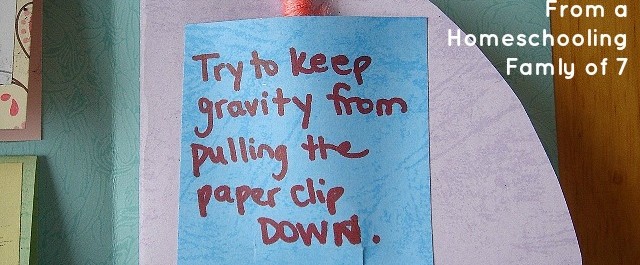 From a
Homeschooling
Famly of 7
Try to keep
gravity from
pulling the
paper clip
DOWN.